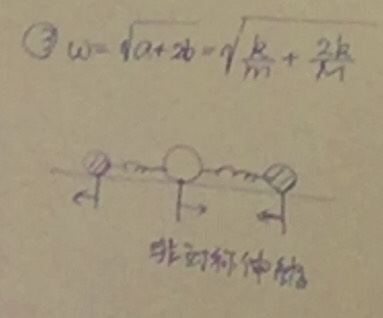 ③ ω=√(a+2b)=√(k/m + 2k/M)
非对称伸缩